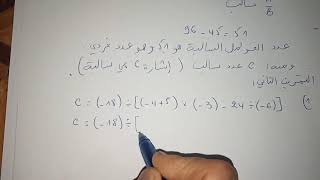 96 - 45 = 51
عدد العوامل السالبة هو 51 وهو عدد فردي
ومنه: C عدد سالب (إشارة C هي سالبة).
التمرين الثاني:
C = (-18) ÷ [(-4+5) × (-3) - 24 ÷ (-6)]
C = (-18) ÷ [